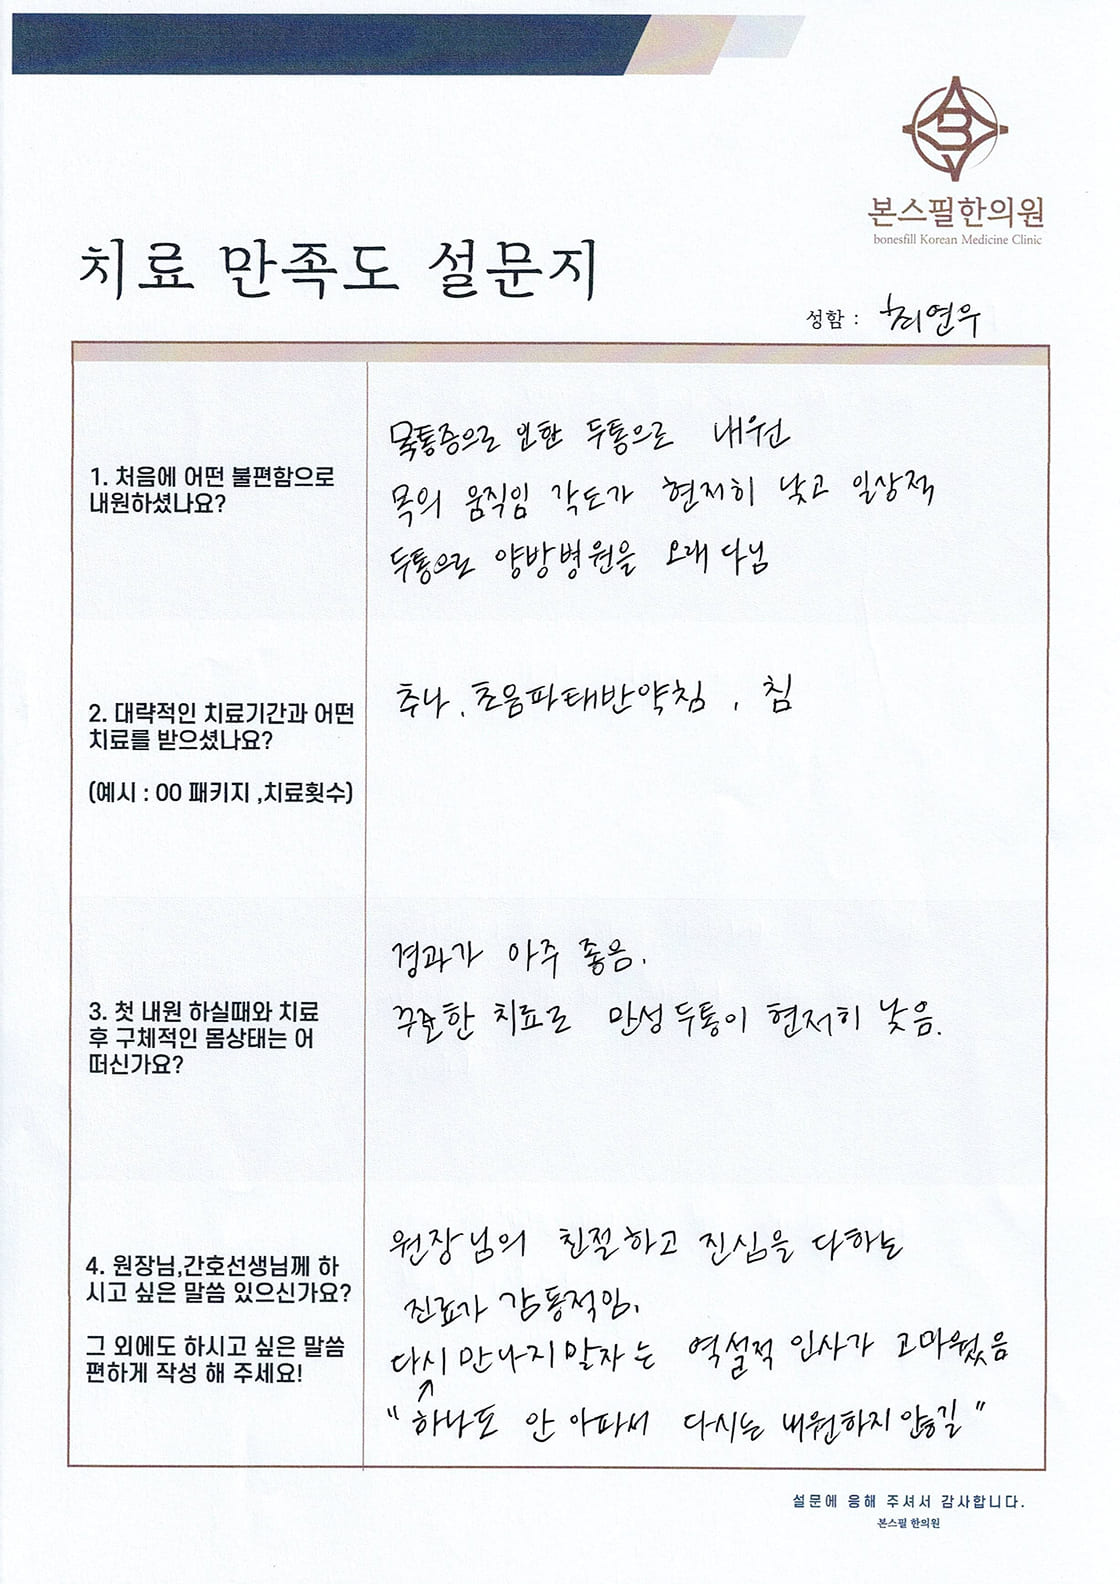 본스필한의원
bonesfill Korean Medicine Clinic
치료 만족도 설문지
성함 : 최연우
1. 처음에 어떤 불편함으로
내원하셨나요?
목통증으로 인한 두통으로 내원
목의 움직임 각도가 현저히 낮고 일상적
두통으로 양방병원을 오래 다님
2. 대략적인 치료기간과 어떤
치료를 받으셨나요?
(예시 : 00 패키지 ,치료횟수)
추나, 초음파태반약침, 침
3. 첫 내원 하실때와 치료
후 구체적인 몸상태는 어
떠신가요?
경과가 아주 좋음.
꾸준한 치료로 만성두통이 현저히 낮음.
4. 원장님,간호선생님께 하
시고 싶은 말씀 있으신가요?
그 외에도 하시고 싶은 말씀
편하게 작성 해 주세요!
원장님의 친절하고 진심을 다하는
진료가 감동적임.
다시 만나지말자는 역설적 인사가 고마웠음
"하나도 안 아파서 다시는 내원하지 않길"
설문에 응해 주셔서 감사합니다.
본스필 한의원